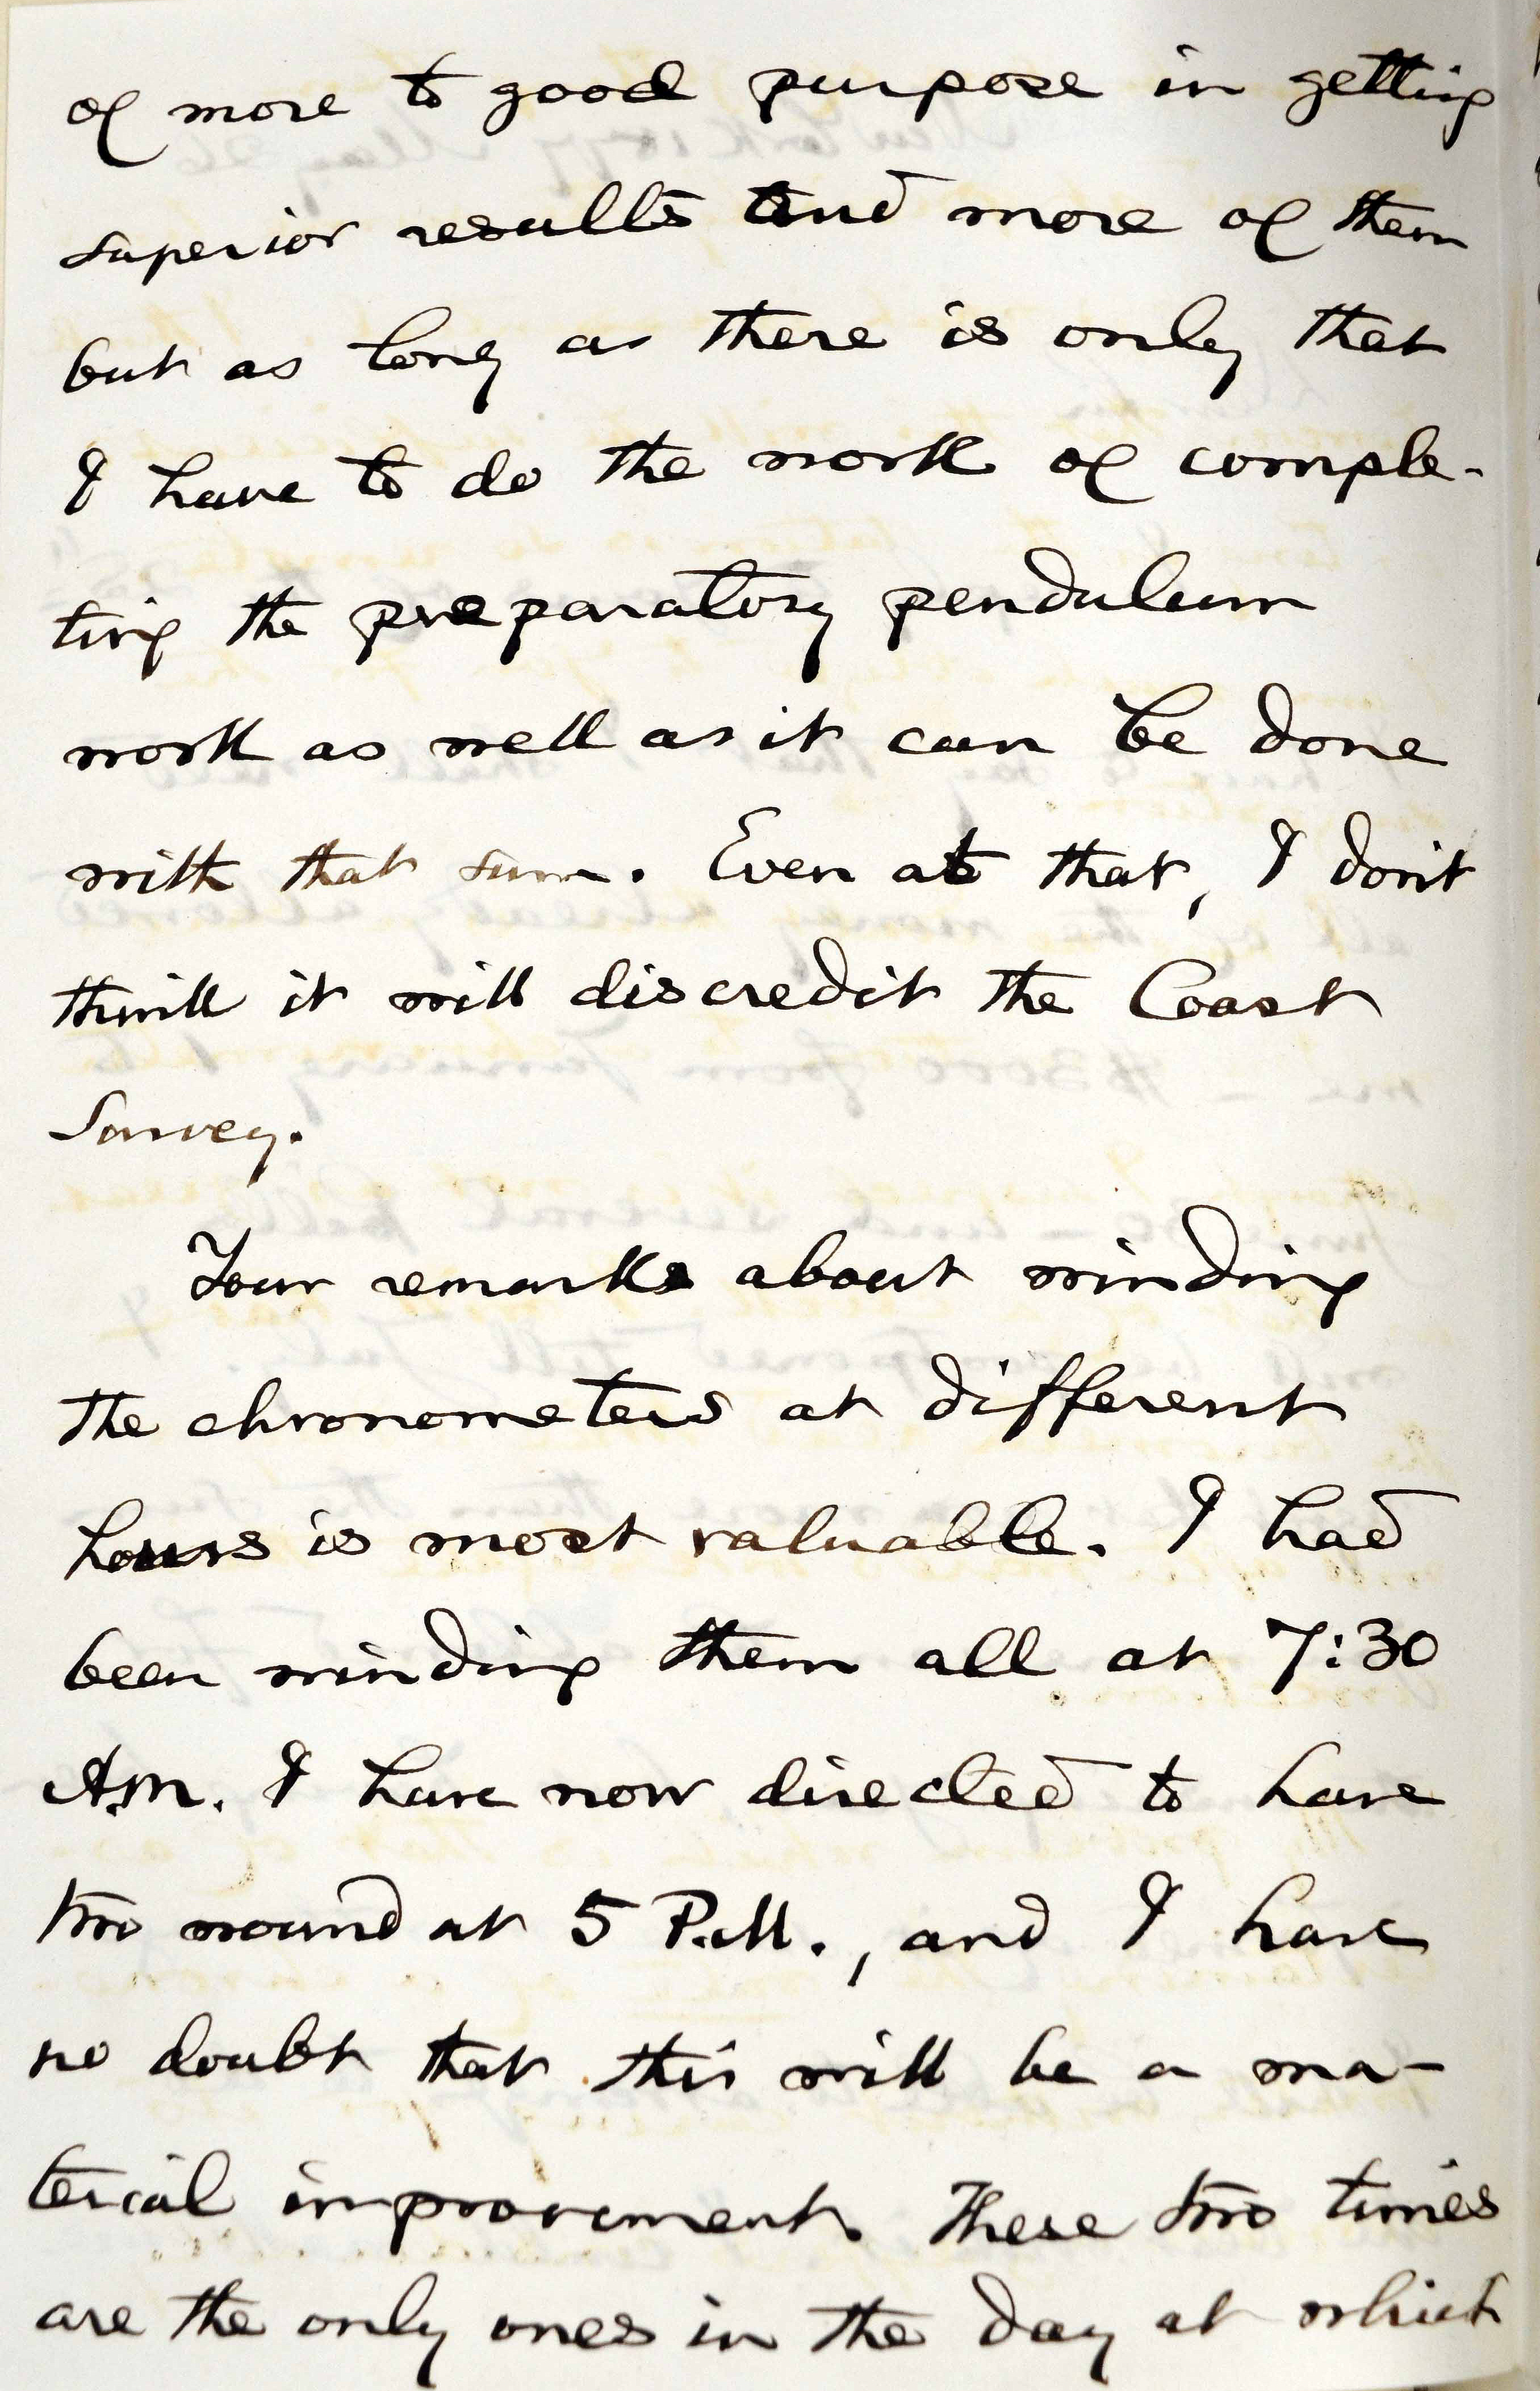 of more to good purpose in getting
superior results and more of them
but as long as there is only that
I have to do the work of comple-
ting the preparatory pendulum
work as well as it can be done
with that sum. Even at that, I don't
think it will discredit the Coast
Survey.
Your remarks about winding
the chronometers at different
hours is most valuable. I had
been winding them all at 7:30
A.M. I have now directed to have
two wound at 5 P.M., and I have
no doubt that this will be a ma-
terial improvement. These two times
are the only ones in the day at which